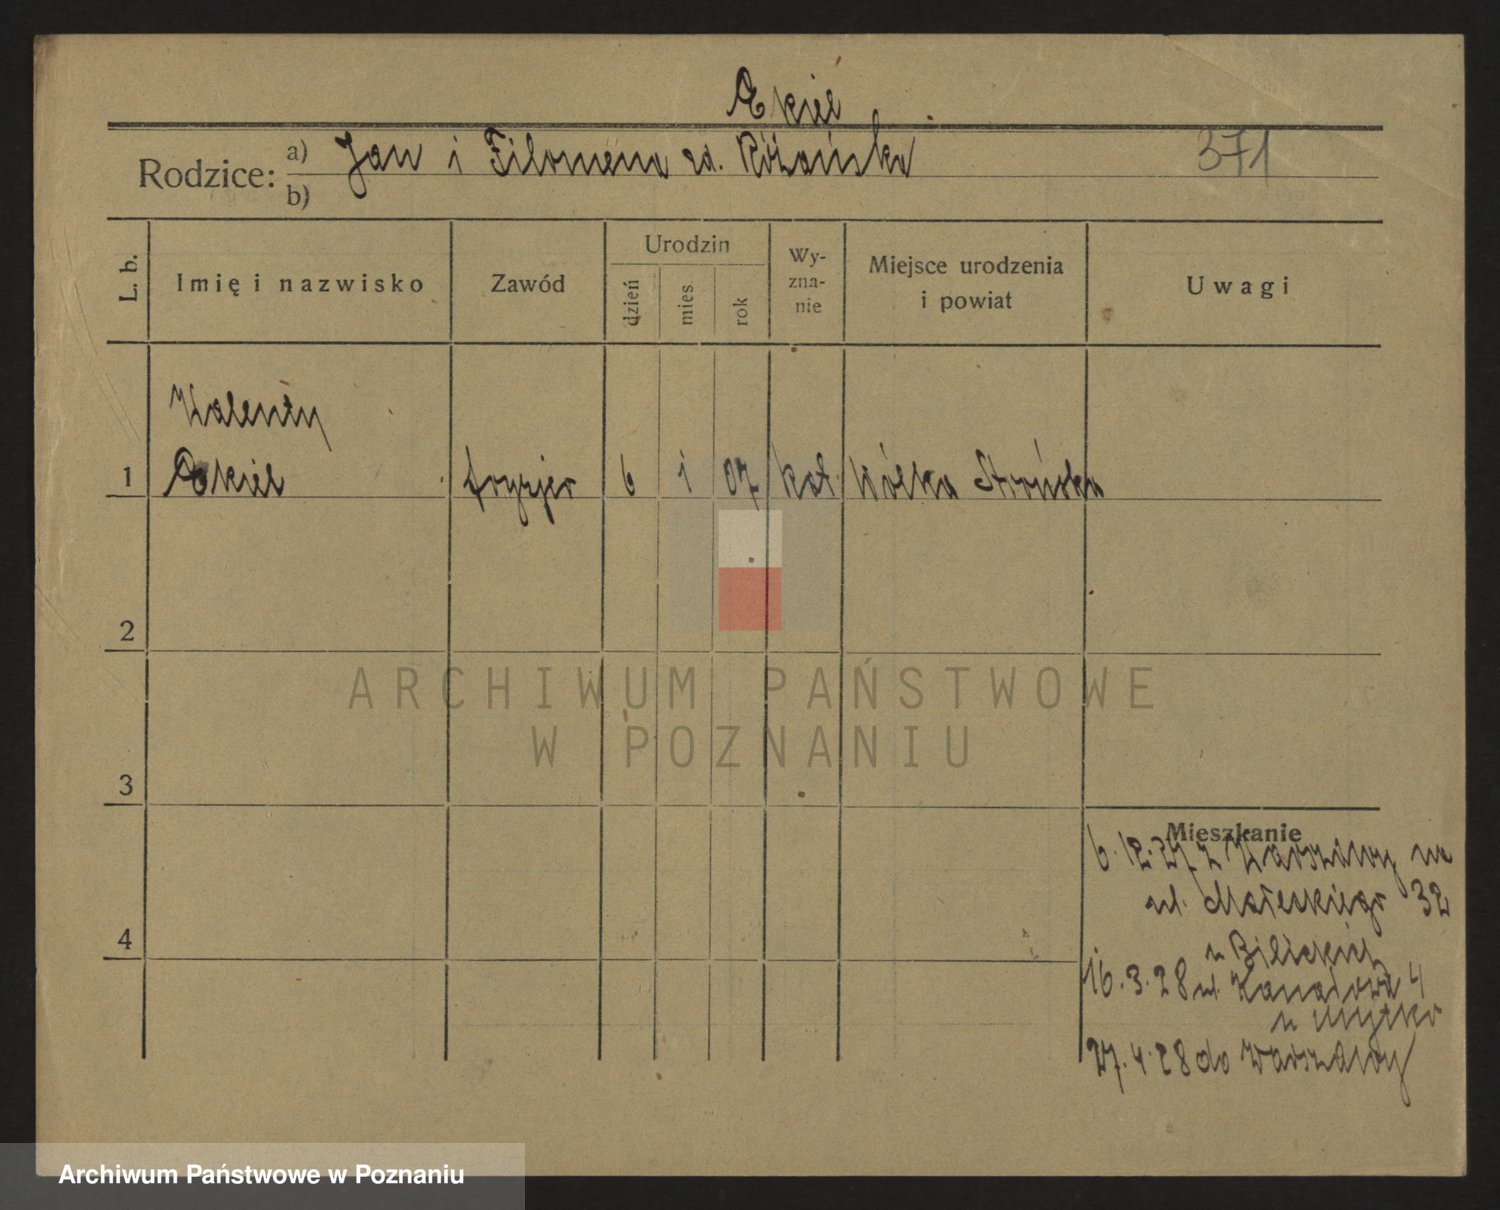 Ekiel
Rodzice: a) Jan i Filomena zd. Różańska 371
b)
L. b. Imię i nazwisko Zawód Urodzin dzień mies. rok Wy-zna-nie Miejsce urodzenia i powiat Uwagi
Walenty
1 Ekiel fryzjer 6 1 07 kat. Wólka
2
ARCHIWUM PAŃSTWOWE
W POZNANIU
3
Mieszkanie
6.12.27 z Warszawy na
ul. Małeckiego 32
4
u
16.3.28 ul. Kanałowa 4
u
27.4.28 do Warszawy
Archiwum Państwowe w Poznaniu